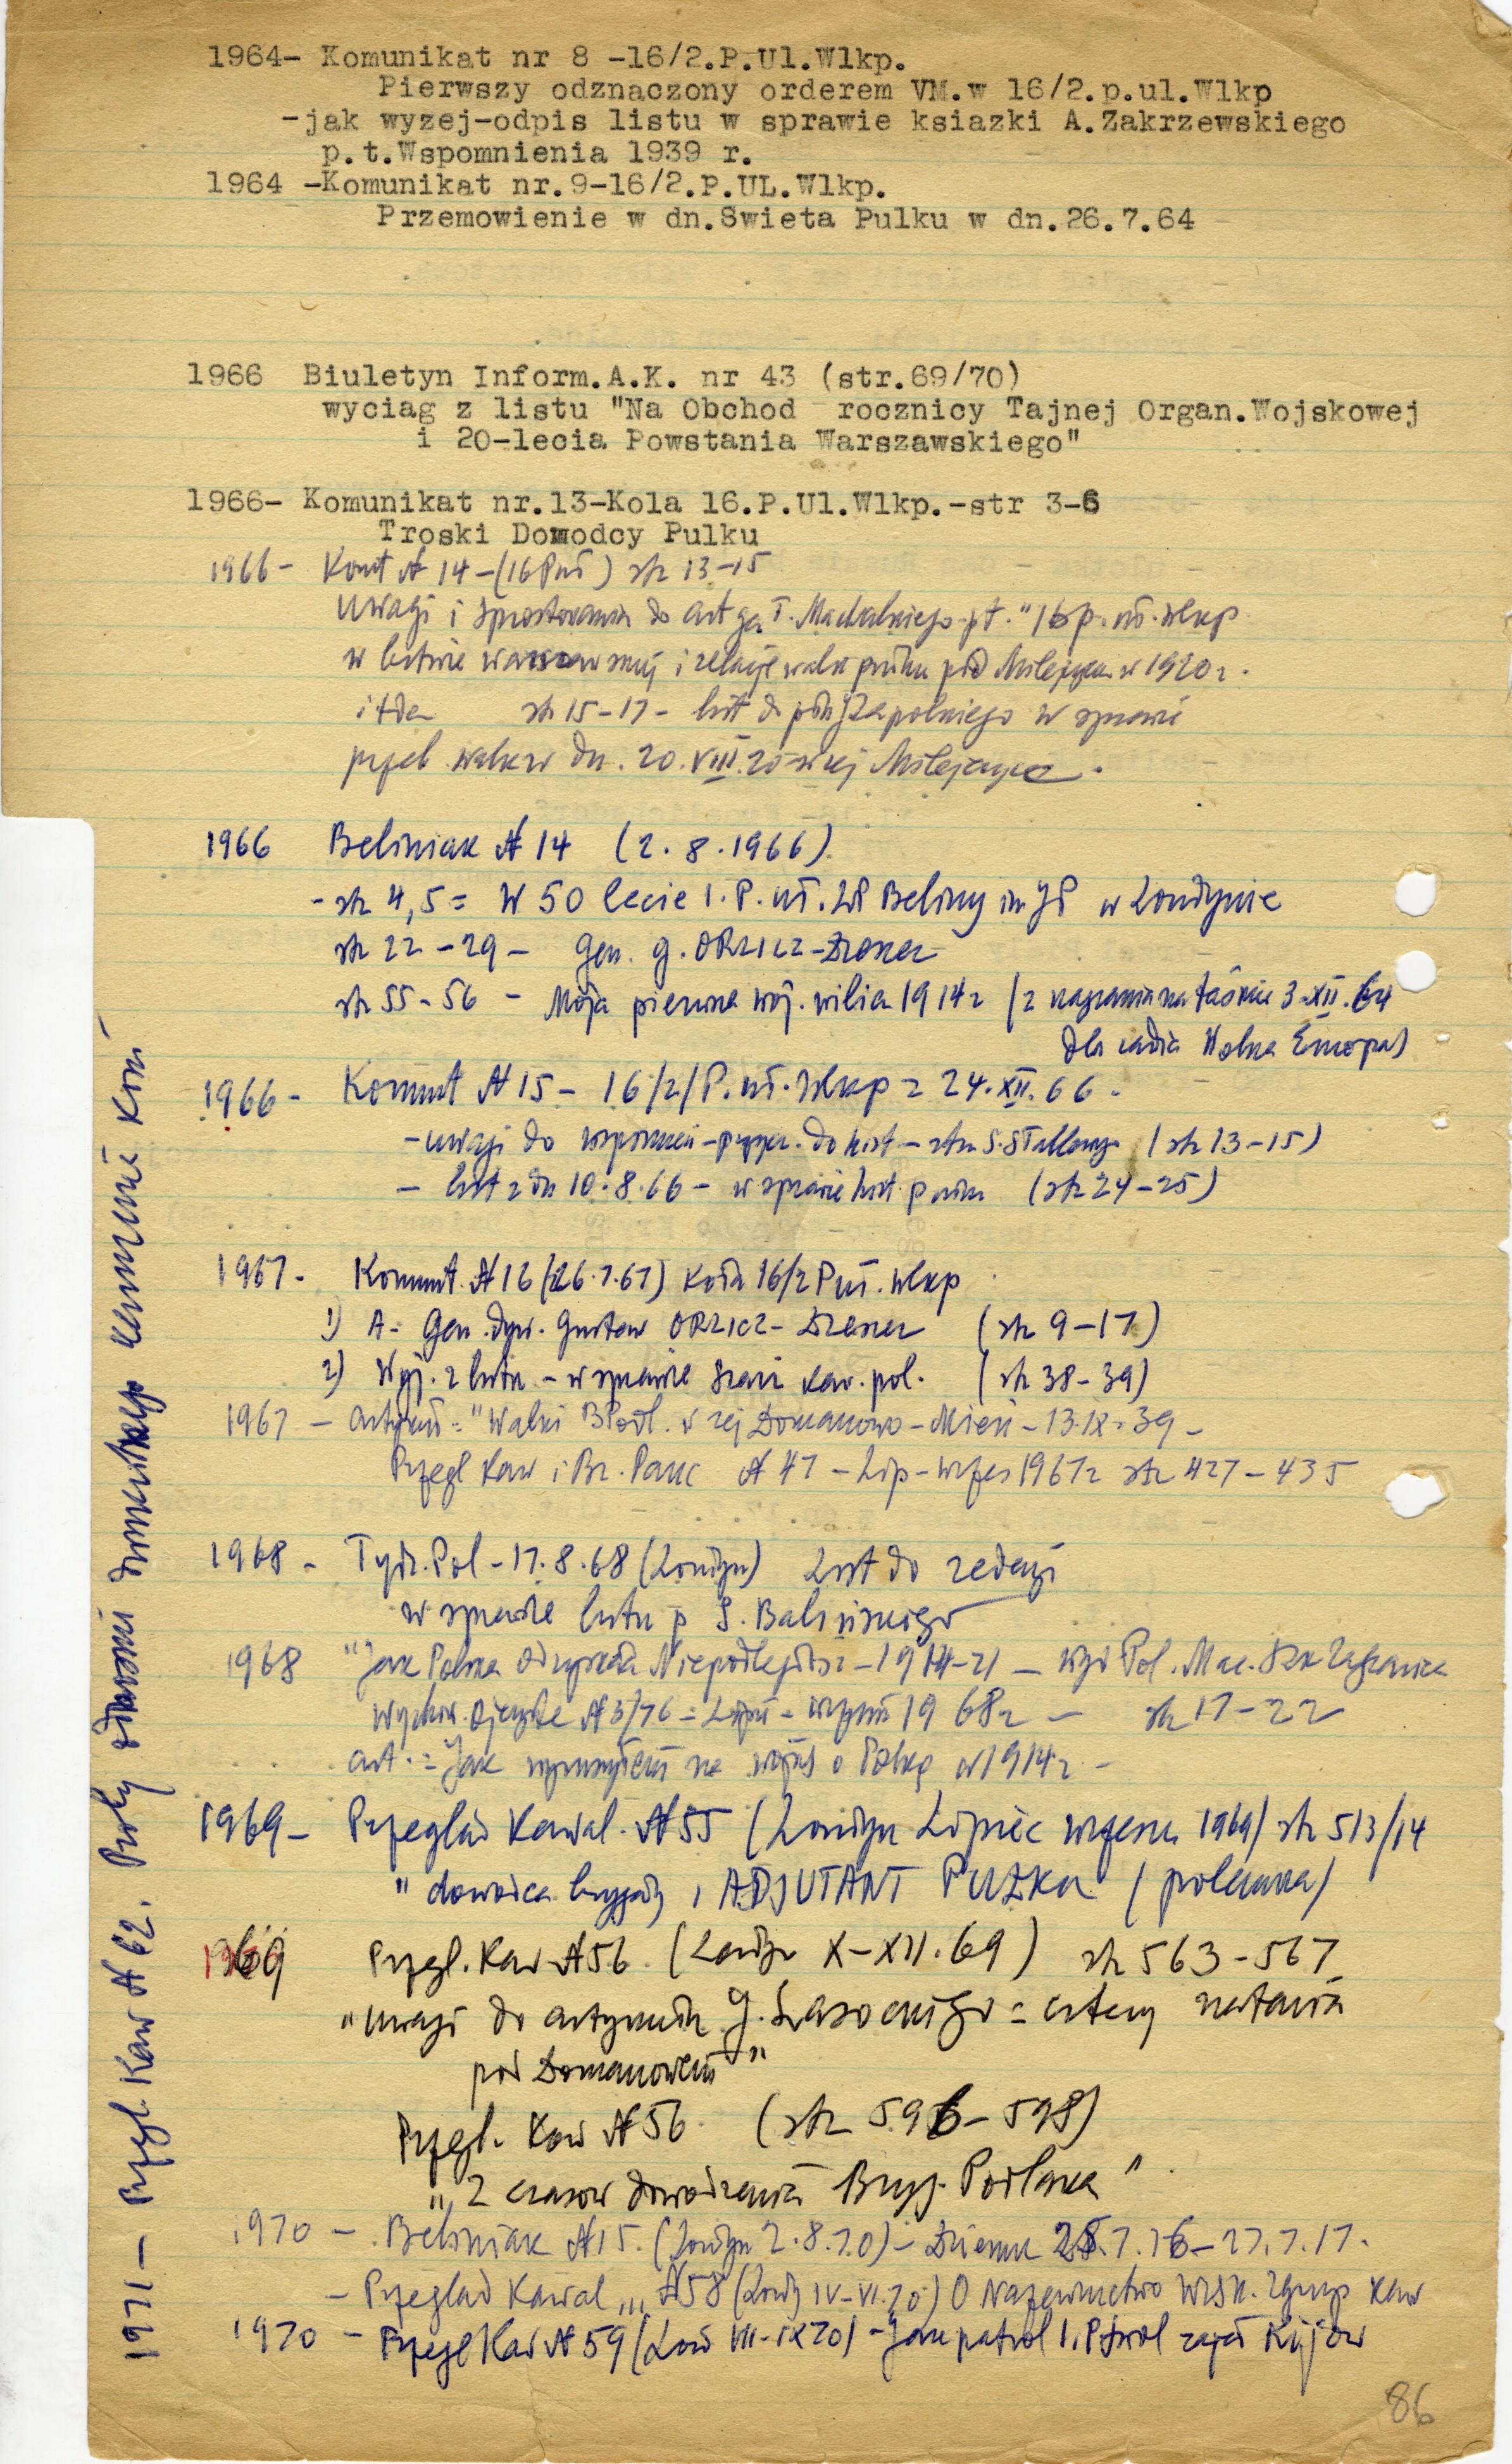 1964- Komunikat nr 8 -16/2.P.Ul.Wlkp.
Pierwszy odznaczony orderem VM.w 16/2.p.ul.Wlkp
-jak wyzej-odpis listu w sprawie ksiazki A.Zakrzewskiego
p.t.Wspomnienia 1939 r.
1964 -Komunikat nr.9-16/2.P.UL.Wlkp.
Przemowienie w dn.Swieta Pulku w dn.26.7.64
1966 Biuletyn Inform.A.K. nr 43 (str.69/70)
wyciag z listu "Na Obchod rocznicy Tajnej Organ.Wojskowej
i 20-lecia Powstania Warszawskiego"
1966- Komunikat nr.13-Kola 16.P.Ul.Wlkp.-str 3-6
Troski Dowodcy Pulku
1966 - Komt № 14 - (16 Puł) str 13-15
Uwagi i sprostowania do art T. Machalskiego pt. "16 p. uł. Wlkp
w bitwie warszawskiej i relacje walk pułku pod Milejczyce w 1920 r.
itda str 15-17 - list do płk Zapolskiego w sprawie
walk w dn. 20.VIII.20 w rej Milejczyce.
1966 Beliniak № 14 (2.8.1966)
- str 4,5 = W 50 lecie 1. P. uł. LP Beliny im JP w Londynie
str 22-29 - Gen. G. ORLICZ-Drezer
str 55-56 - Moja pierwsza woj. wilia 1914 r (z nagrania na taśmie 3-XII.64
dla radia Wolna Europa)
1966 - Komunt № 15 - 16/2/P. uł. Wlkp = 24.XII.66.
- uwagi do wspomnień - do hist - S. (str 13-15)
- list z dn 10.8.66 - w sprawie hist. pułku (str 24-25)
1967 - Komunt. № 16 (26.7.67) Koła 16/2 P uł. Wlkp
1) A - Gen. dyw. Gustaw ORLICZ-Drezer (str 9-17)
2) Wyj. z listu - w sprawie szarż kaw. pol. (str 38-39)
1967 - artykuł = "Walki BPodl. w rej Domanowo - Mień - 13.IX.39 -
Przegl Kaw i Br. Panc № 47 - Lip - wrzes 1967 r str 427-435
1968 - Tydz. Pol - 17.8.68 (Londyn) List do redakcji
w sprawie listu p S. Balińskiego
1968 "Jak Polska odzyskała Niepodległość - 1914-21 - wyd Pol. Mac. Szk Zagranica
Wychow. Ojczyste № 3/76 = Lipiec - wrzesień 1968 r - str 17-22
art. = Jak wyruszyłem na wojnę o Polskę w 1914 r -
1969 - Przegląd Kawal. № 55 (Londyn Lipiec wrzesień 1969) str 513/14
" dowódca brygady i ADJUTANT PUŁKU (polemika)
1969 Przegl. Kaw № 56 (Londyn X-XII.69) str 563-567
"Uwagi do artykułu J. Lasockiego = cztery natarcia
pod Domanowem"
Przegl. Kaw № 56 (str 596-598)
"Z czasów dowodzenia Bryg. Podlaska"
1970 - Beliniak № 15 (Londyn 2.8.70) - Dziennik 25.7.16 - 27.7.17.
- Przegląd Kawal „, № 58 (Lond IV-VI.70) O Nazewnictwo Wlsk. Zgrup Kaw
1970 - Przegl Kaw № 59 (Lond VII-IX 70) - Jak patrol 1. P szwol zajął Kijów
1971 - Przegl. Kaw № 62. Próby
86